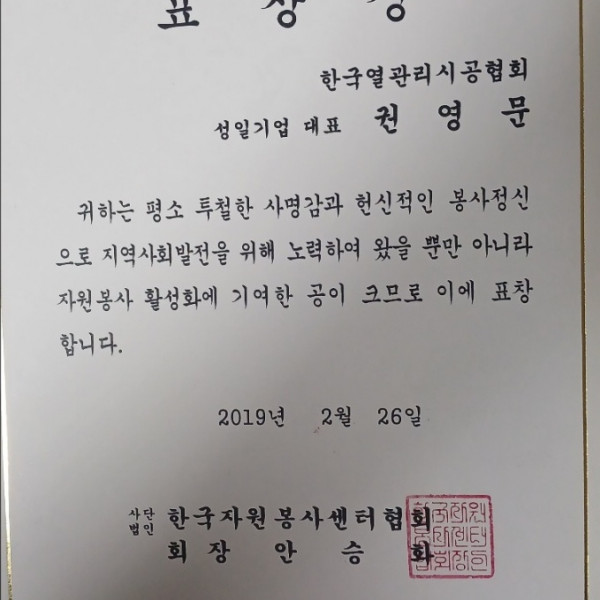 표 창 장
한국열관리시공협회
성일기업 대표 권 영 문
귀하는 평소 투철한 사명감과 헌신적인 봉사정신
으로 지역사회발전을 위해 노력하여 왔을 뿐만 아니라
자원봉사 활성화에 기여한 공이 크므로 이에 표창
합니다.
2019년 2월 26일
사단
법인 한국자원봉사센터협회
회 장 안 승 화